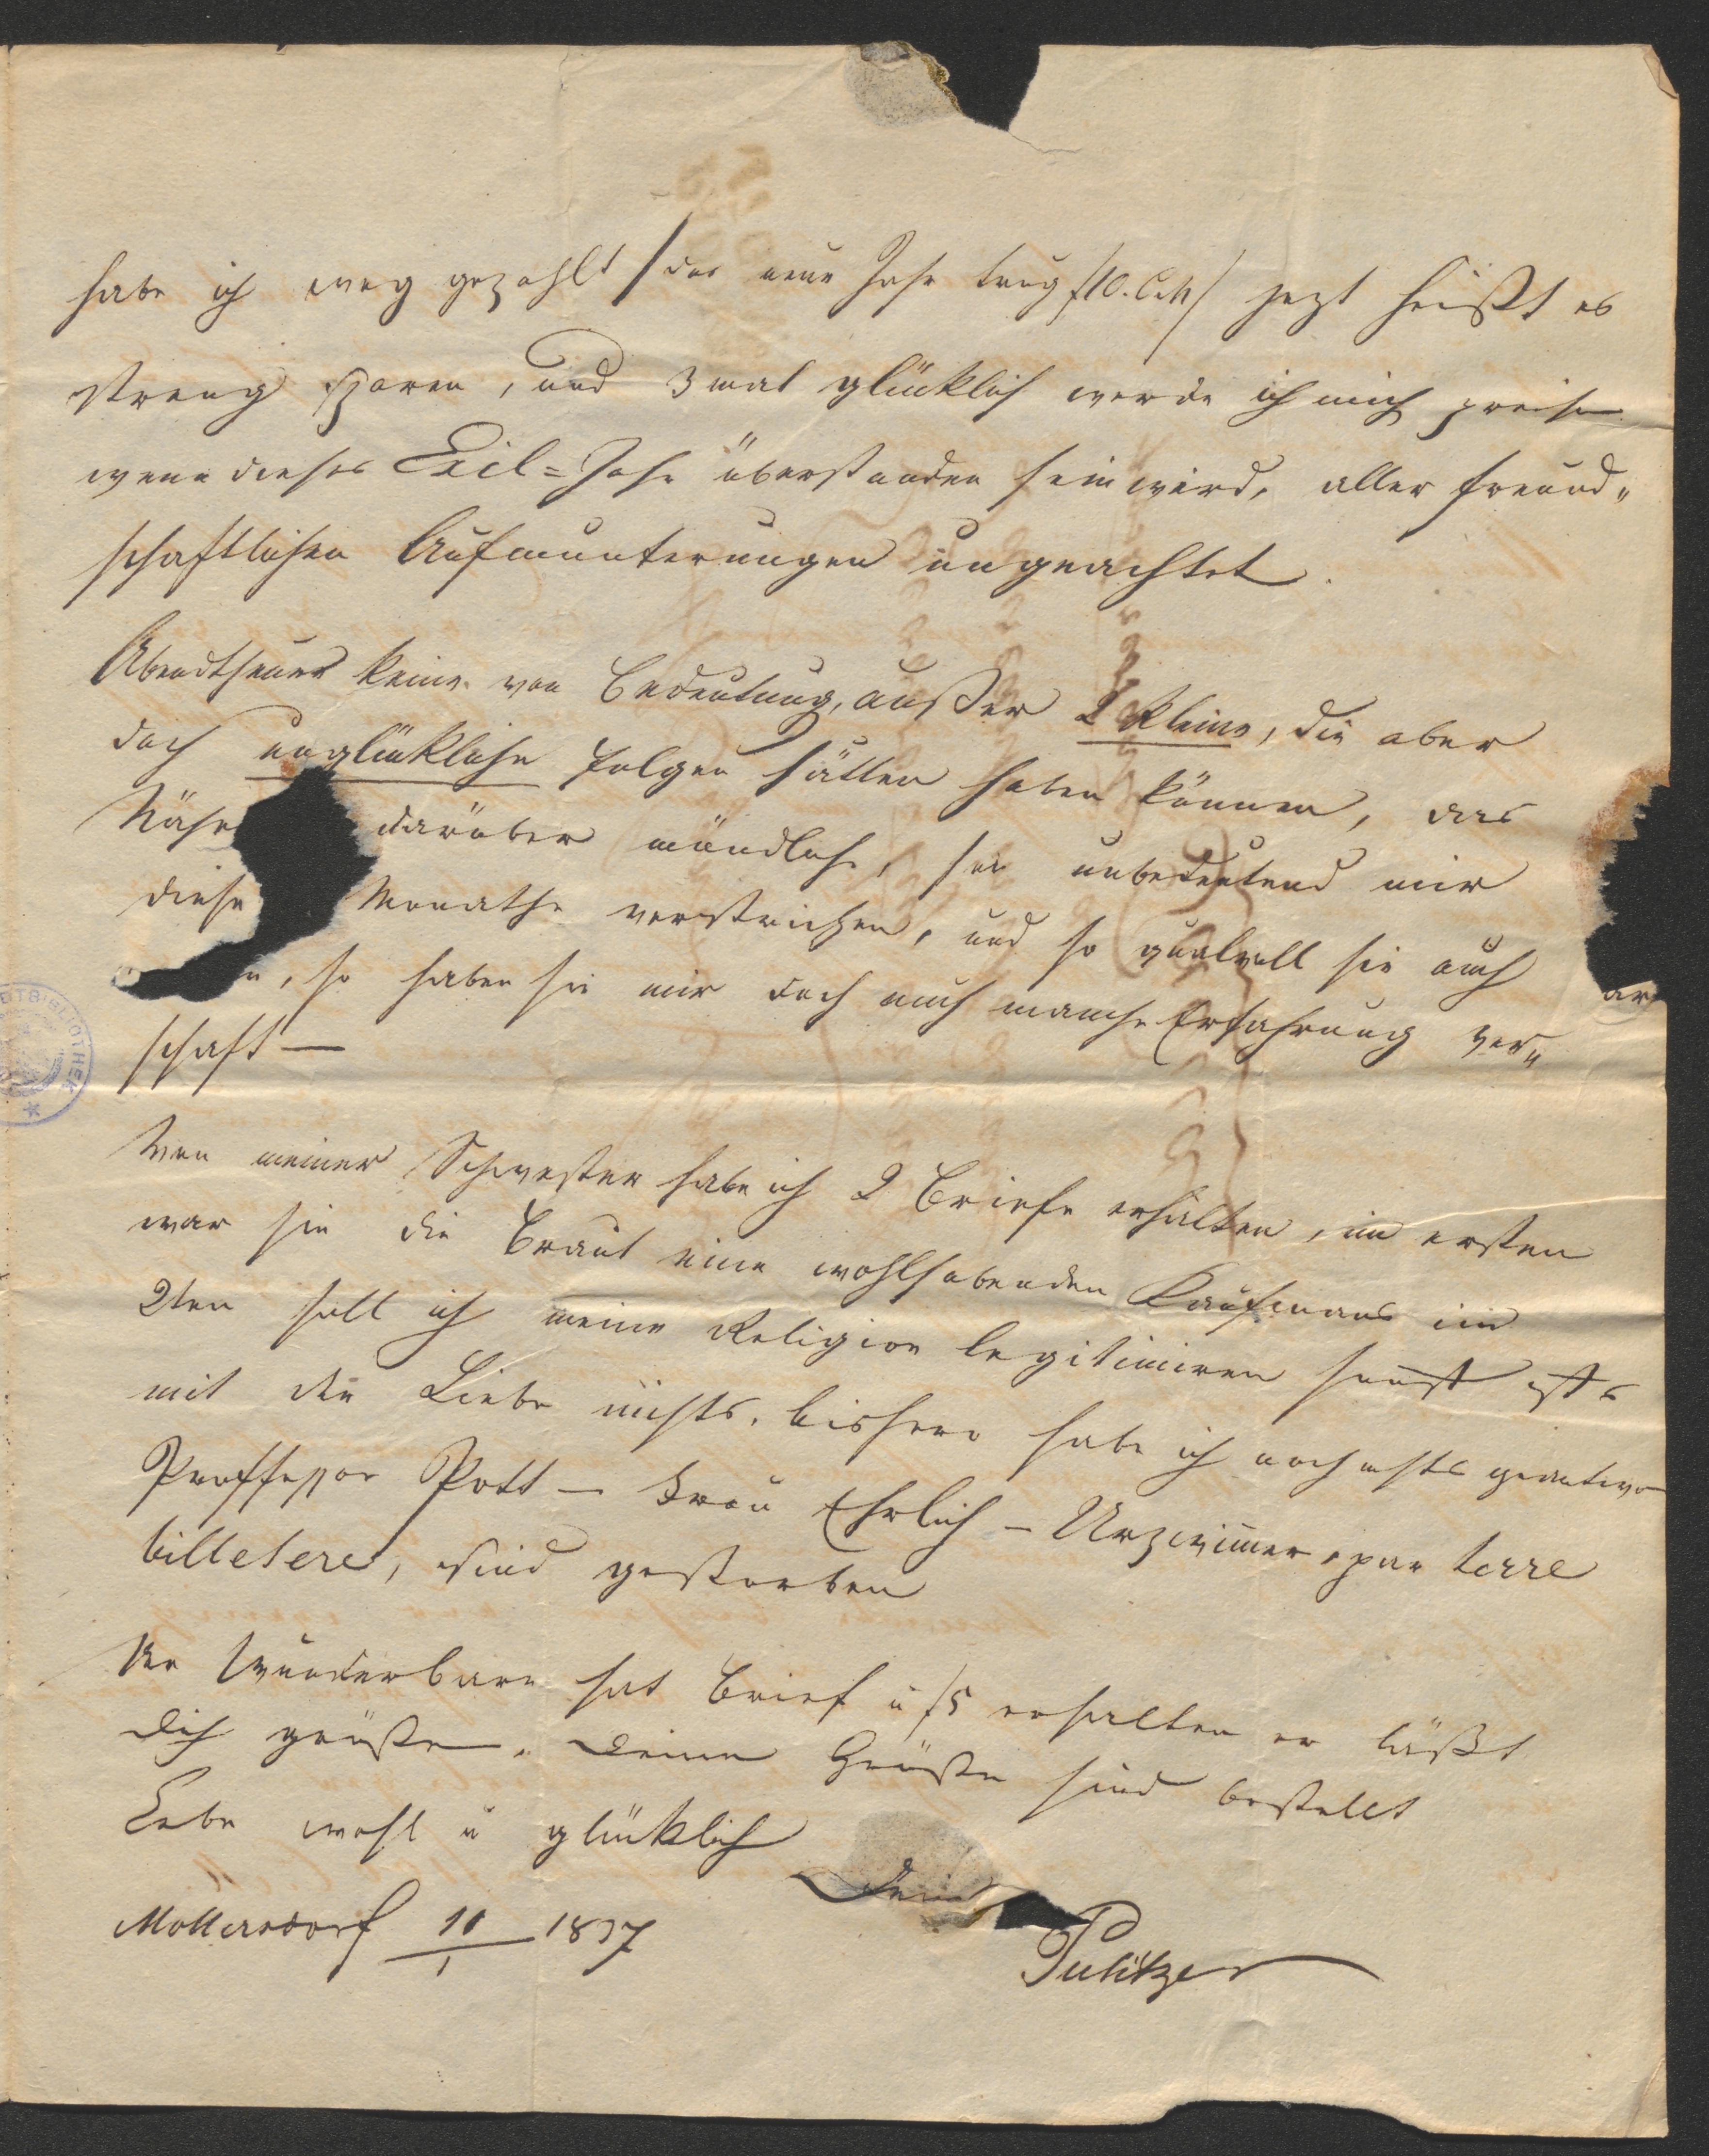 habe ich weg gezahlt /das neue Jahr trug f10. C.M/ jezt heißt es
streng sparen, und 3mal glücklich werde ich mich preisen
wenn dieses Exil=Jahr überstanden sein wird, aller freund„
schaftlichen Aufmunterungen ungeachtet.
Abendtheuer keine von Bedeutung, außer 2 kleine, die aber
doch unglückliche Folgen hätten haben können, das
Nähe darüber mündlich, so unbedeutend mir
diese Monathe verstrichen, und so qualvoll sie auch war
n, so haben sie mir doch auch manche Erfahrung ver„
schaft —
Von meiner Schwester habe ich 2 Briefe erhalten, im ersten
war sie die Braut eine wohlhabenden Kaufmans im
2ten soll ich meine Religion legitimiren sonst ists
mit der Liebe nichts. bishero habe ich noch nichts geantwo
Proffessor Pott — Frau Ehrlich — par terre
billetere, sind gestorben
Der Wunderbare hat Brief u f5 erhalten er läßt
dich grüßen. Deine Grüße sind bestellt
Lebe wohl u glücklich
Dein
Möllersdorf 11/1 1837
Pulitzer
STADTBIBLIOTHEK